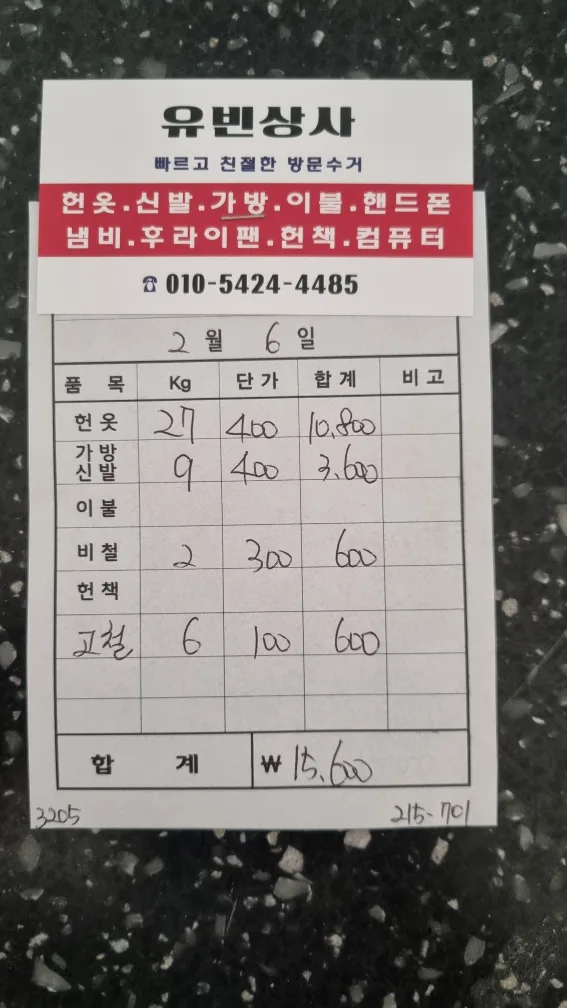 유빈상사
빠르고 친절한 방문수거
헌옷.신발.가방.이불.핸드폰
냄비.후라이팬.헌책.컴퓨터
☎ 010-5424-4485
2 월 6 일
품 목 Kg 단가 합계 비고
헌옷 27 400 10,800
가방
신발 9 400 3,600
이불
비철 2 300 600
헌책
고철 6 100 600
합 계 ₩ 15,600
3205 215-701